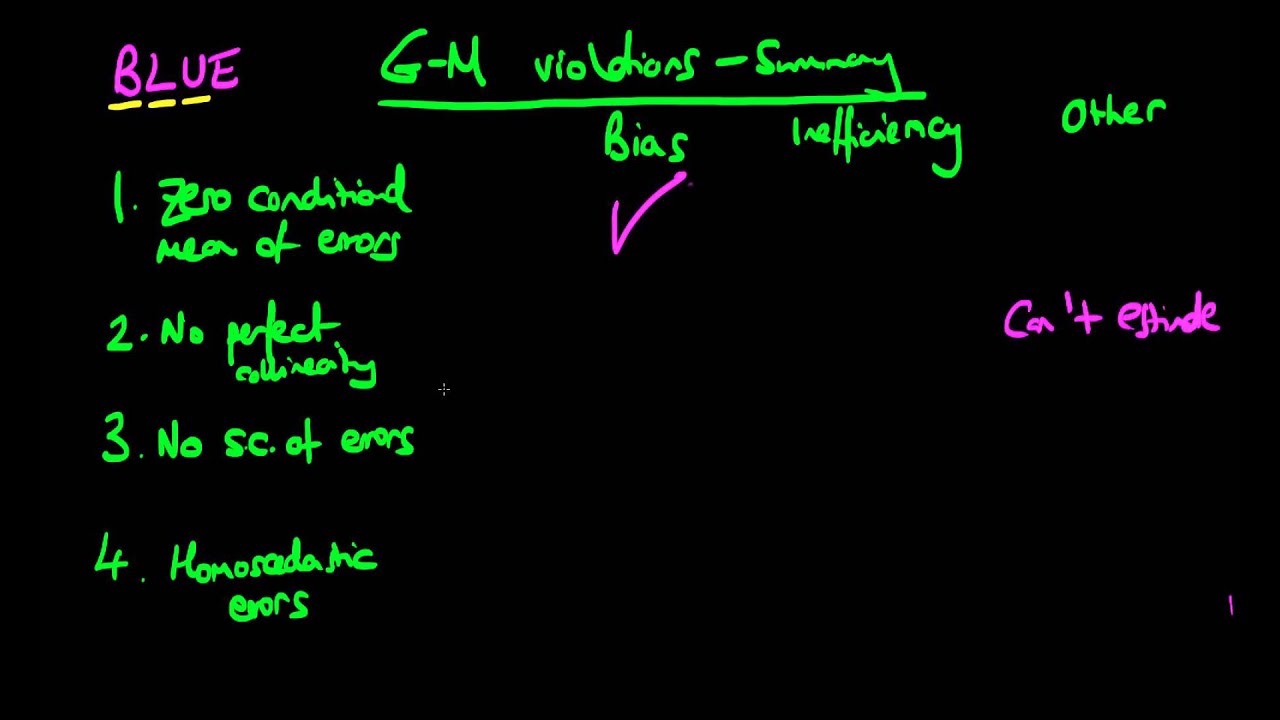 BLUE
G-M violations - Summary
Bias Inefficiency Other
1. Zero conditional
mean of errors
2. No perfect
collinearity
Can't estimate
3. No s.c. of errors
4. Homoscedastic
errors